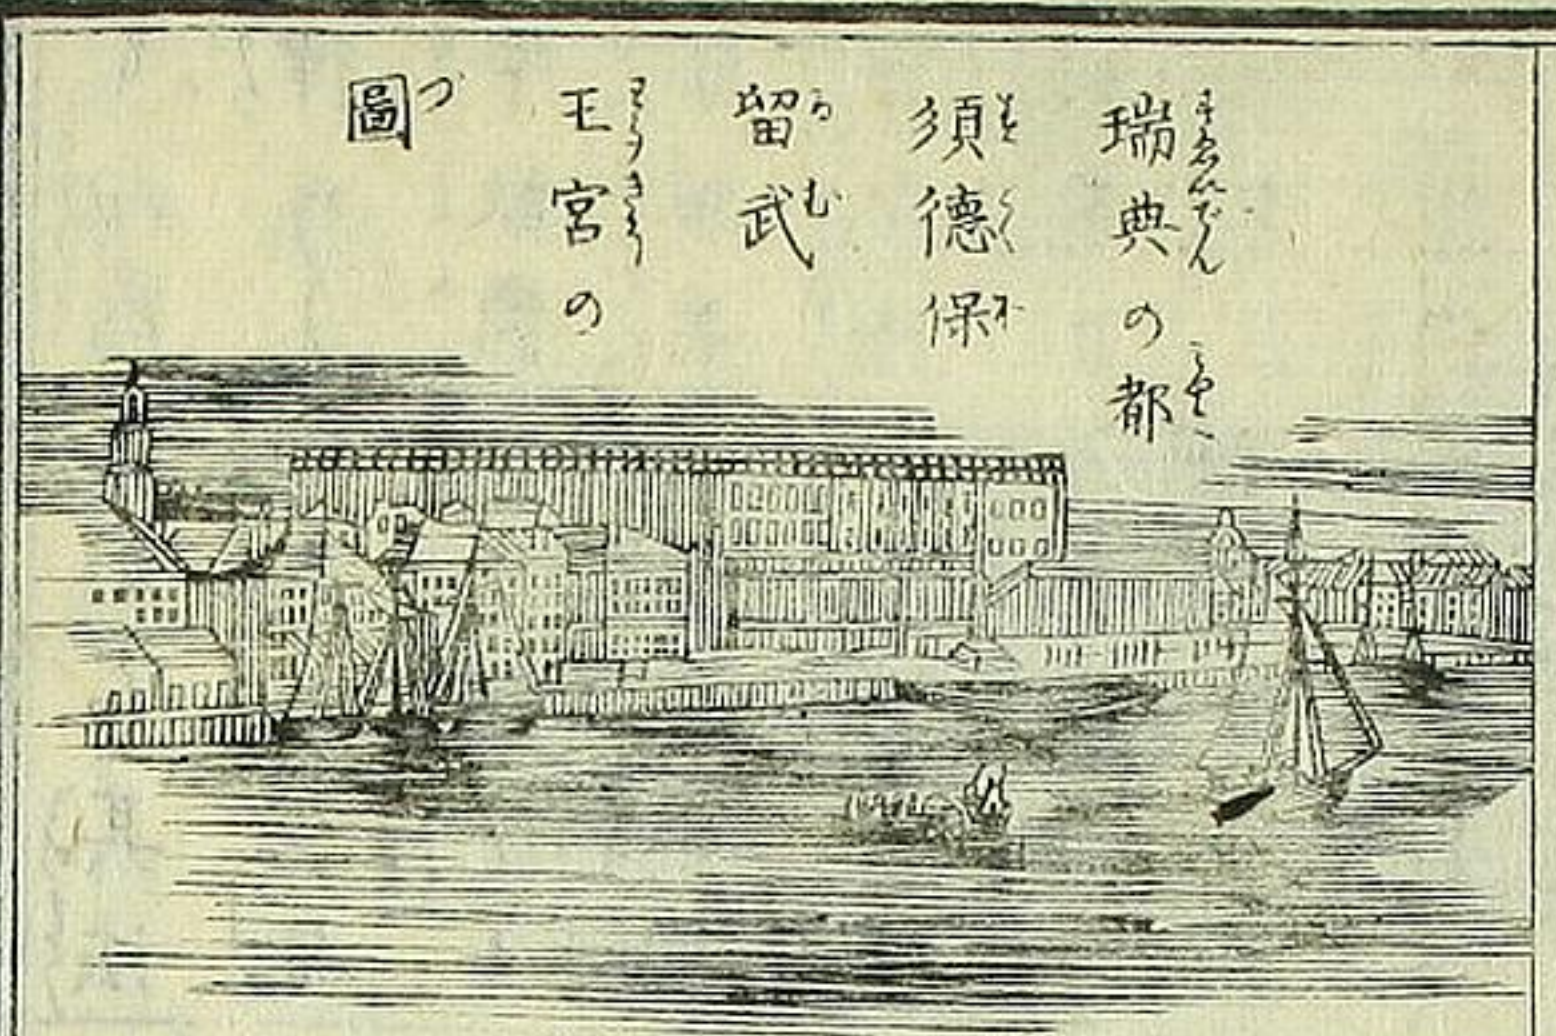 瑞典の都
須德保
留武
王宮の
圖